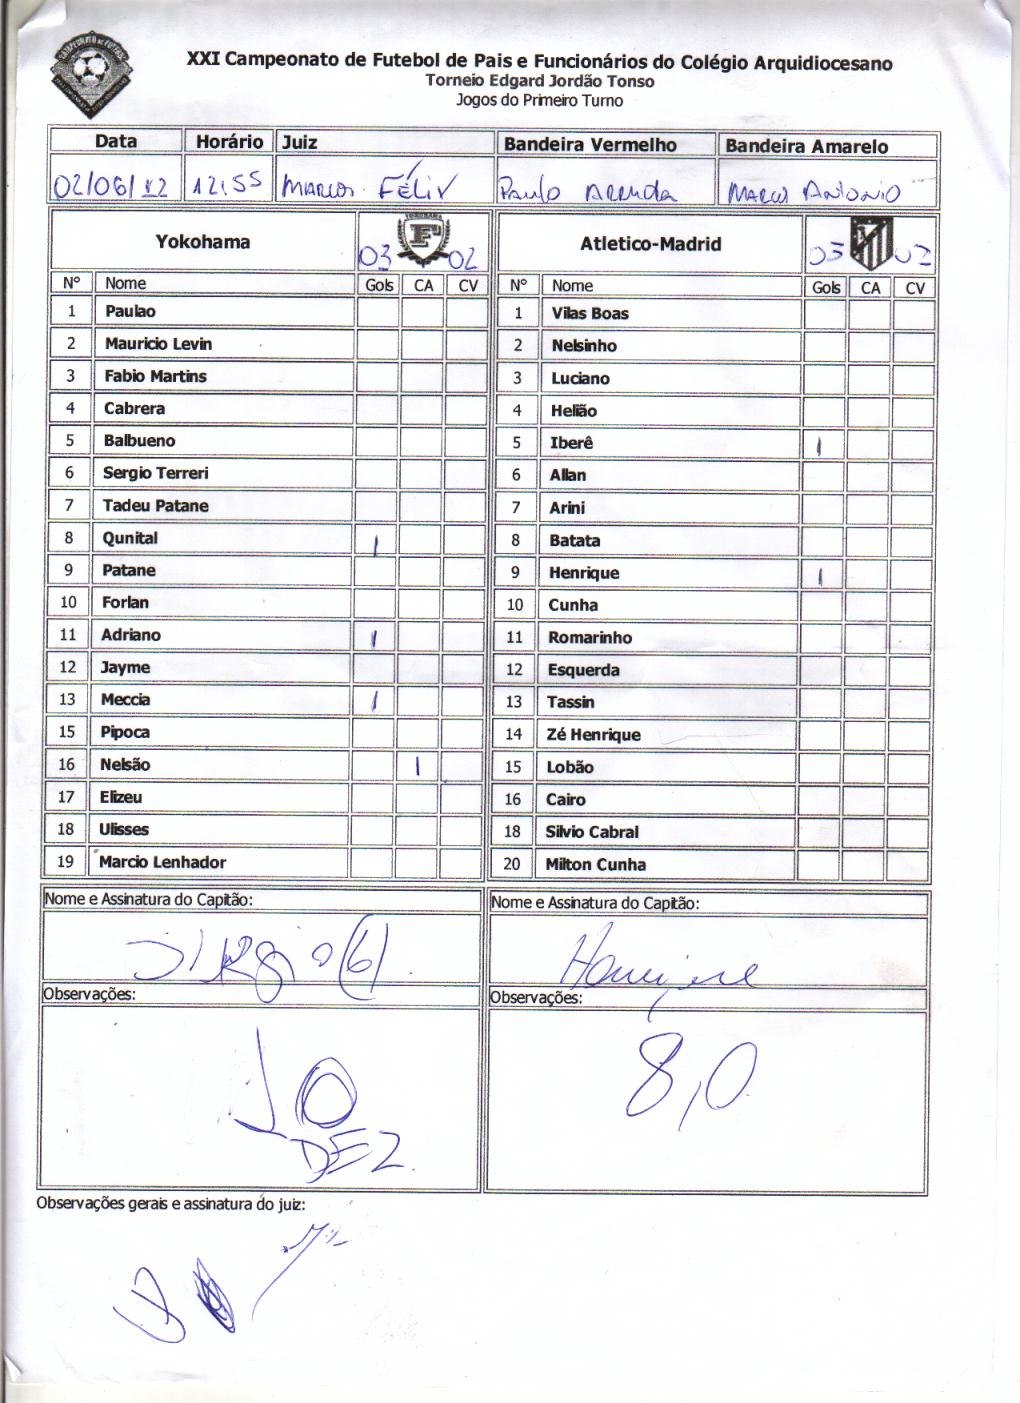 XXI Campeonato de Futebol de Pais e Funcionários do Colégio Arquidiocesano
Torneio Edgard Jordão Tonso
Jogos do Primeiro Turno
Data Horário Juiz Bandeira Vermelho Bandeira Amarelo
02/06/12 12:55 MARCOS FÉLIX PAULO ARRUDA MARCOS ANTONIO
Yokohama 03 02 Atletico-Madrid 03 02
N° Nome Gols CA CV N° Nome Gols CA CV
1 Paulao 1 Vilas Boas
2 Mauricio Levin 2 Nelsinho
3 Fabio Martins 3 Luciano
4 Cabrera 4 Helião
5 Balbueno 5 Iberê 1
6 Sergio Terreri 6 Allan
7 Tadeu Patane 7 Arini
8 Qunital 1 8 Batata
9 Patane 9 Henrique 1
10 Forlan 10 Cunha
11 Adriano 1 11 Romarinho
12 Jayme 12 Esquerda
13 Meccia 1 13 Tassin
15 Pipoca 14 Zé Henrique
16 Nelsão 1 15 Lobão
17 Elizeu 16 Cairo
18 Ulisses 18 Silvio Cabral
19 Marcio Lenhador 20 Milton Cunha
Nome e Assinatura do Capitão: Nome e Assinatura do Capitão:
(6) Henrique
Observações: Observações:
10 8,0
DEZ
Observações gerais e assinatura do juiz: